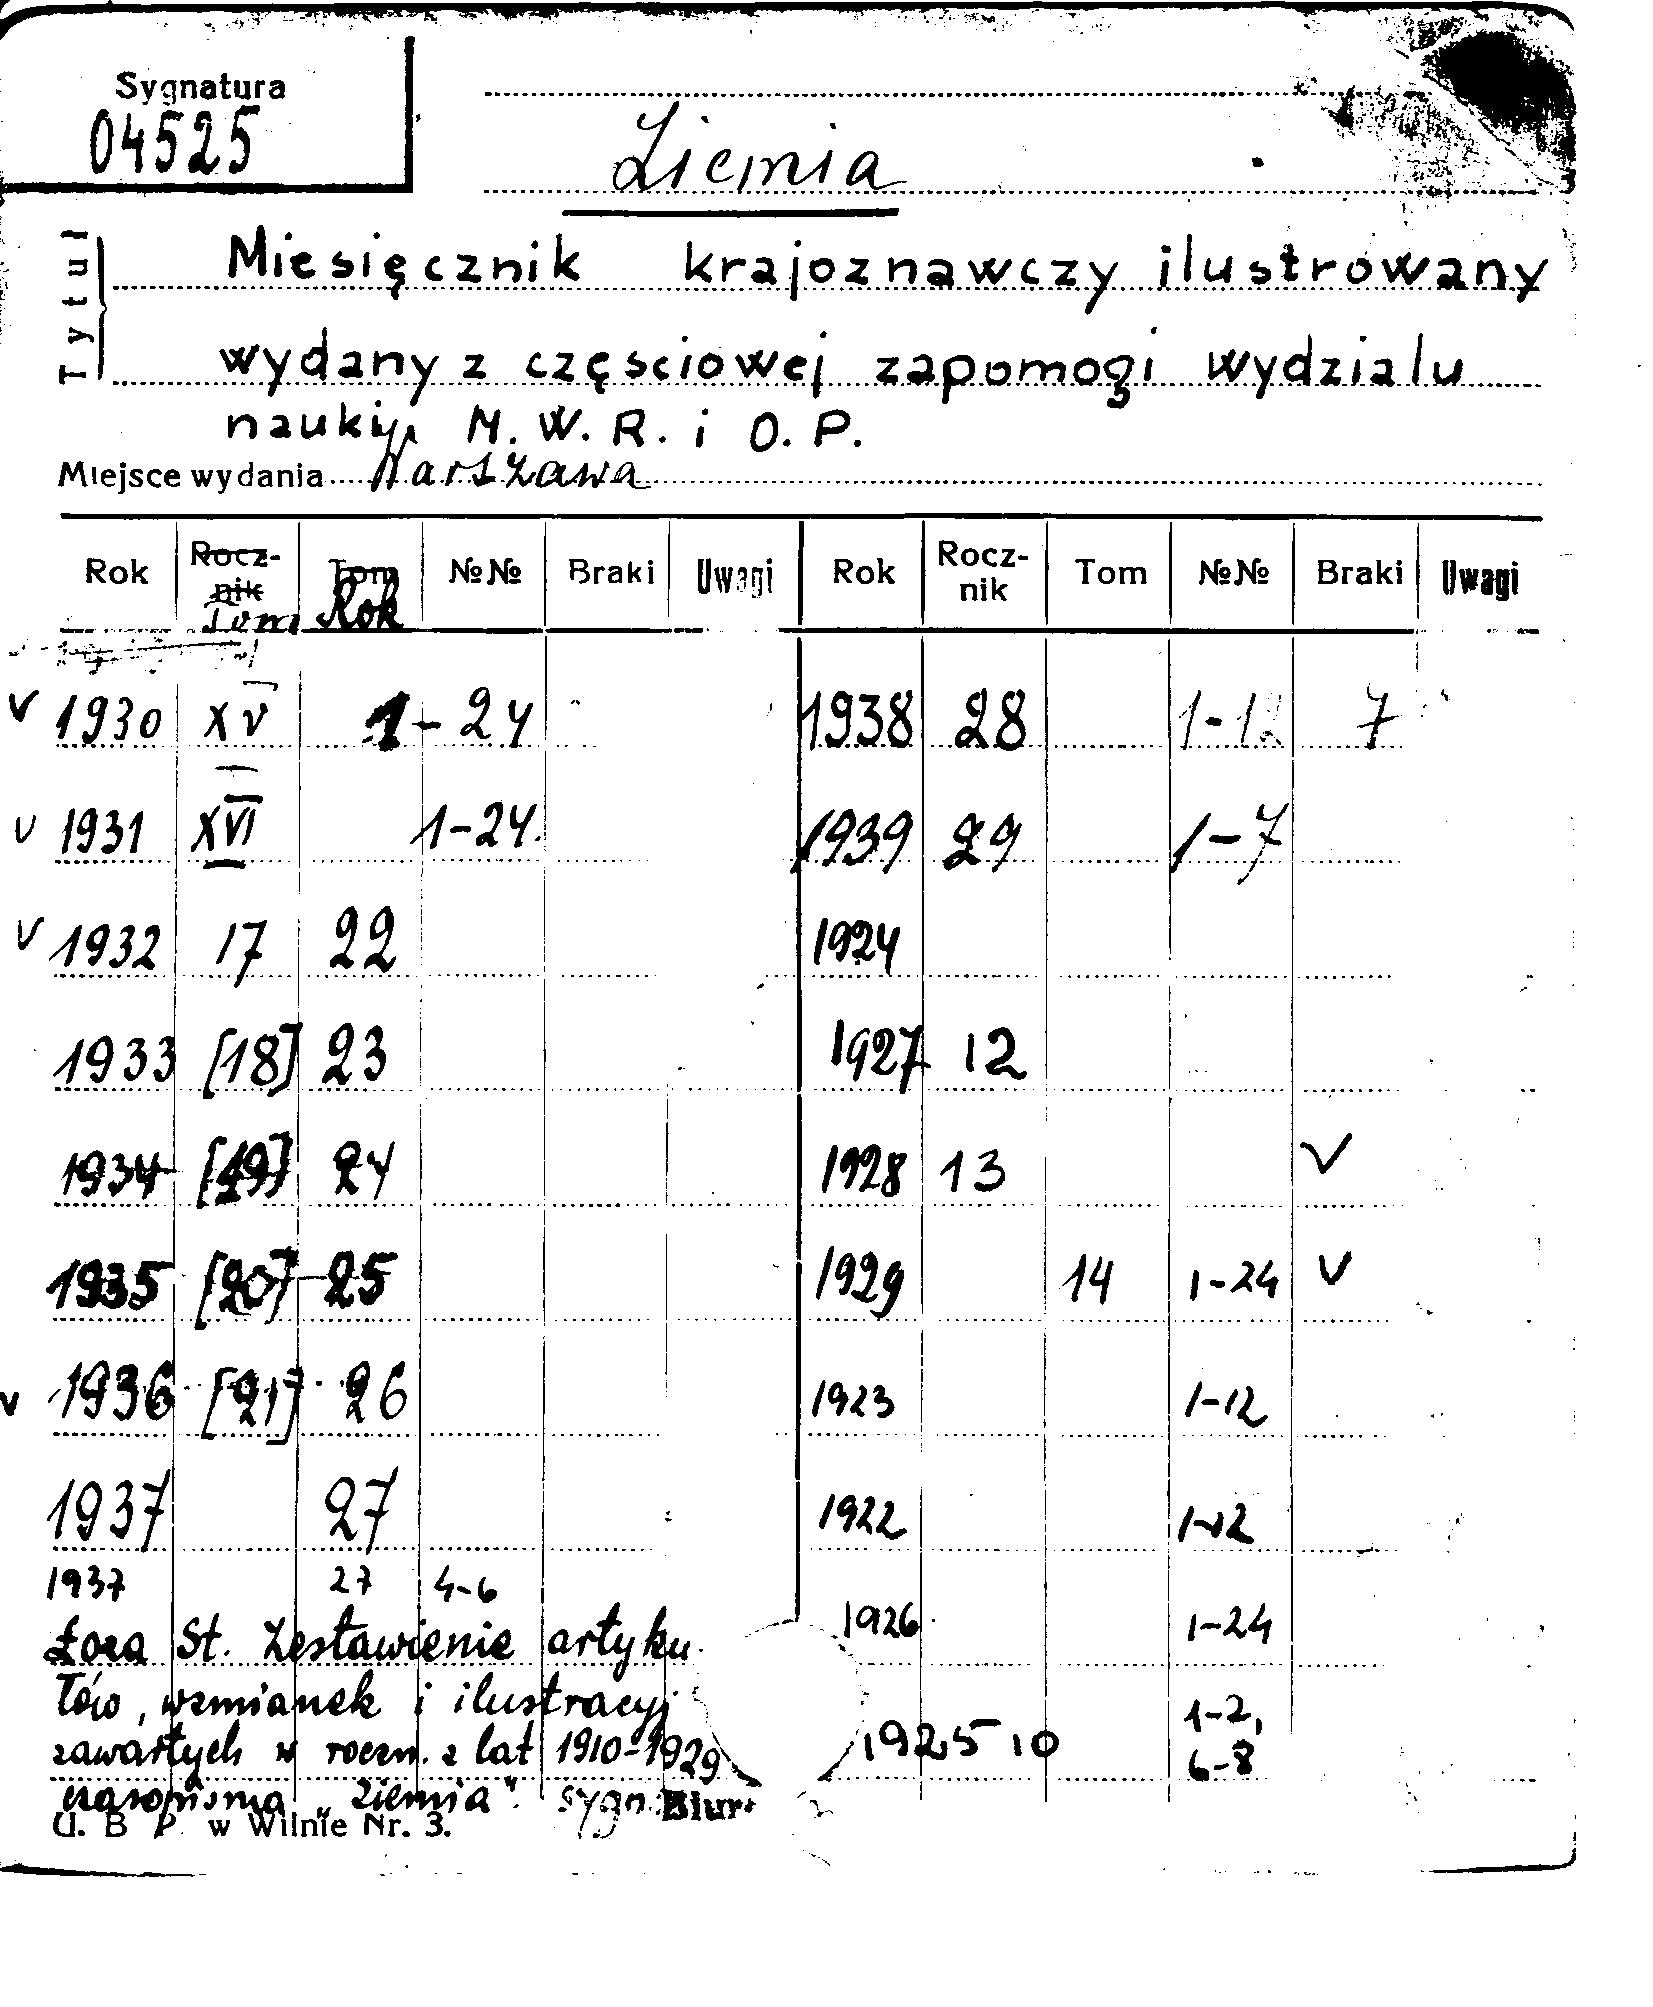 Sygnatura
04525
Ziemia
Tytuł
Miesięcznik krajoznawczy ilustrowany
wydany z częsciowej zapomogi wydzialu
nauki M. W. R. i O. P.
Miejsce wydania Warszawa
Rok Rocz-nik Tom №№ Braki Uwagi Rok Rocz-nik Tom №№ Braki Uwagi
Tom Rok
v 1930 XV 1-24 1938 28 1-12 7
v 1931 XVI 1-24. 1939 29 1-7
v 1932 17 22 1924
1933 [18] 23 1927 12
1934 [19] 24 1928 13 v
1935 [20] 25 1929 14 1-24 v
v 1936 [21] 26 1923 1-12
1937 27 1922 1-12
1937 27 4-6
1926 1-24
St. Zestawienie artyku
łów, wzmianek i ilustracyj
zawartych w roczn. z lat 1910-1929
czasopisma „Ziemia". sygn.
1925 10 1-2,
6-8
U. B P. w Wilnie Nr. 3.